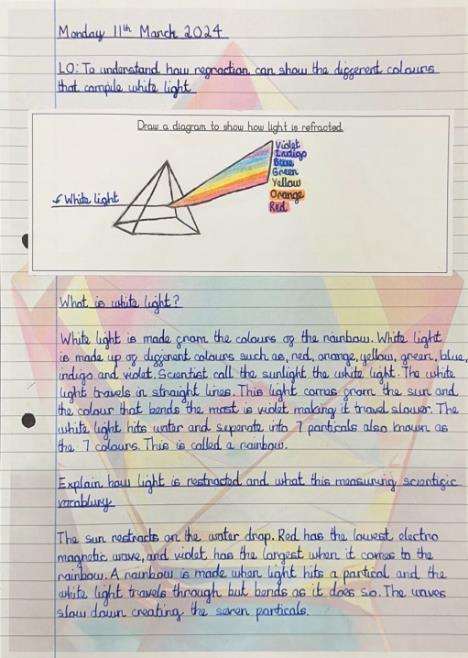 Monday 11th March 2024
LO: To understand how regraction can show the diggerent colours
that compile white light
Draw a diagram to show how light is refracted
Violet
Indigo
Blue
Green
Yellow
Orange
Red
White light
What is white light?
White light is made from the colours of the rainbow. White light
is made up of different colours such as, red, orange, yellow, green, blue,
indigo and violet. Scientist call the sunlight the white light. The white
light travels in straight lines. This light comes from the sun and
the colour that bends the most is violet making it travel slower. The
white light hits water and seperate into 7 particals also known as
the 7 colours. This is called a rainbow.
Explain how light is restracted and what this measuring scientific
vocablury
The sun restracts on the water drop. Red has the lowest electro
magnetic wave, and violet has the largest when it comes to the
rainbow. A rainbow is made when light hits a partical and the
white light travels through but bends as it does so. The waves
slow down creating the seven particals.